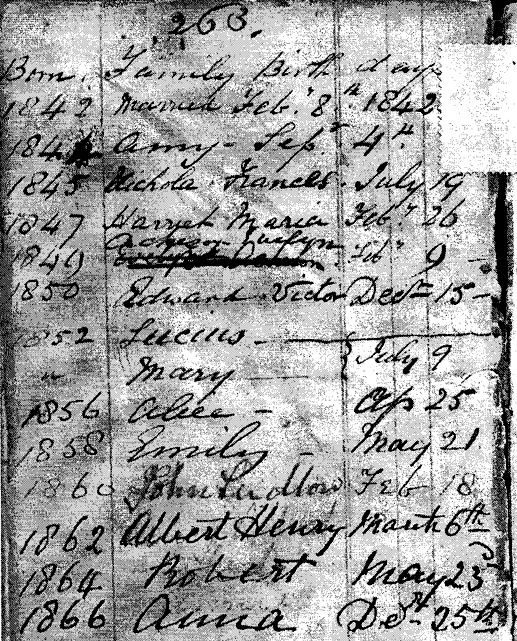 263.
Born. Family Birth days
1842 Married Feb.y 8th 1842
184 Amy - Sepr 4th
1845 Nichola Frances. July 19
1847 Harryet Maria Feby 26
Acheson Evelyn
1849 Feby 9 -
1850 Edward Victor Decr 15 -
1852 Lucius - } July 9
" Mary
1856 Alice - Ap 25
1858 Emily - May 21
1860 John Ludlow Feb 18
1862 Albert Henry March 6th
1864 Robert May 23
1866 Anna Dec 25th